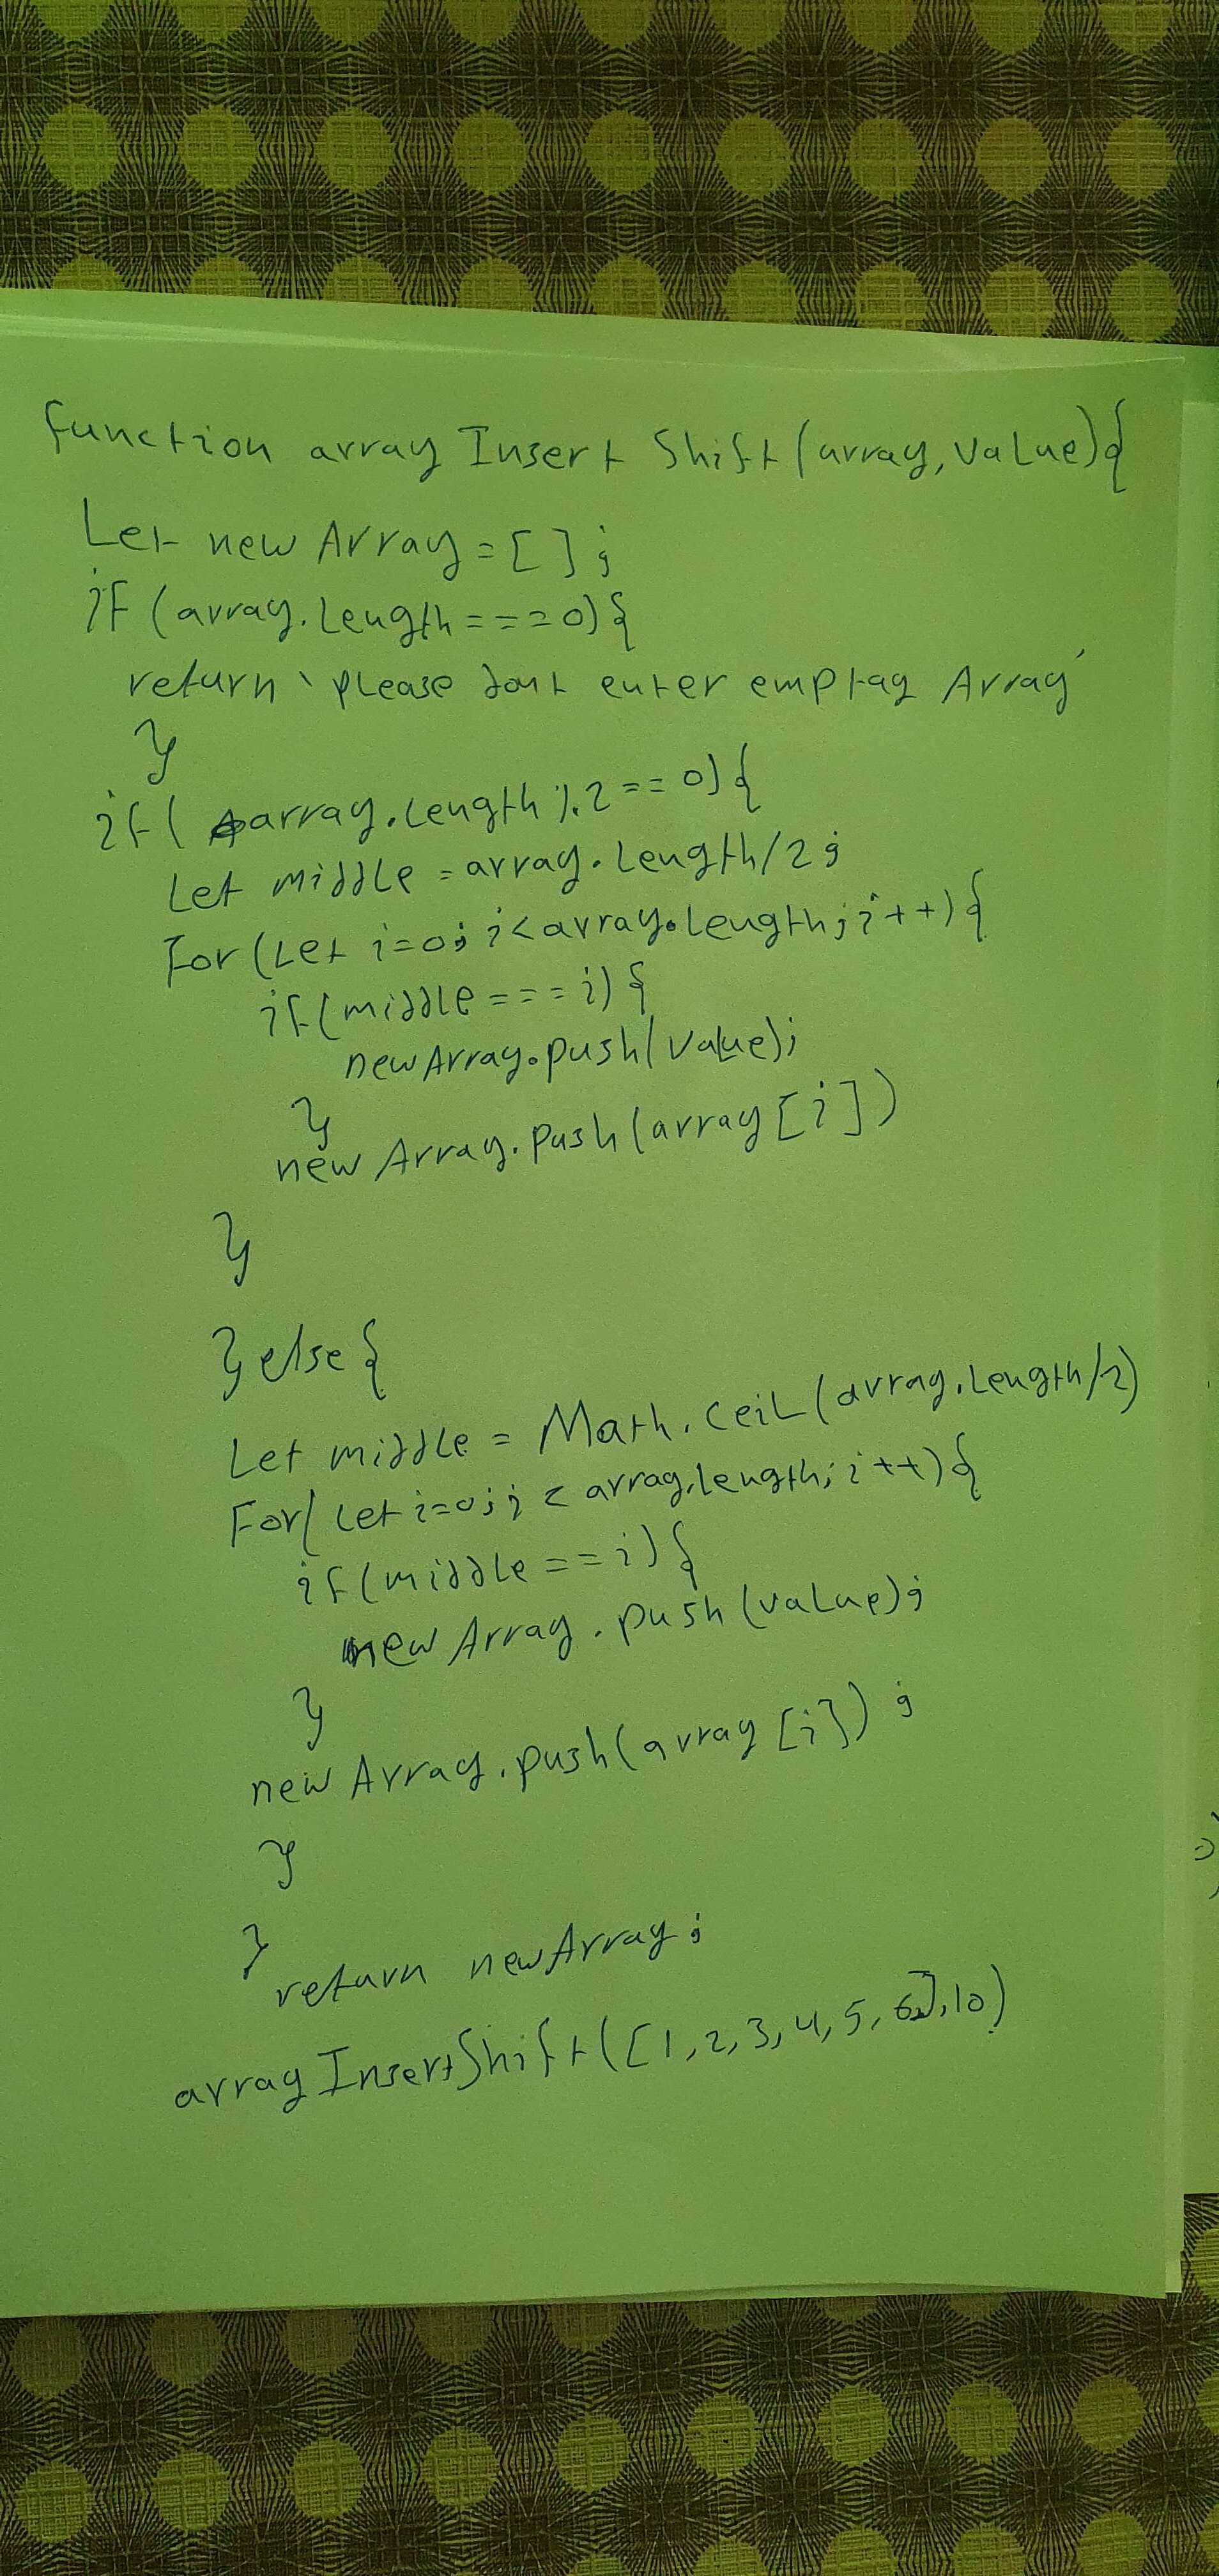 function arrayInsertShift(array,value){
Let newArray=[];
if(array.length===0){
return `please dont enter emptay Array`
}
if(array.length%2==0){
Let middle=array.length/2;
For(Let i=0;i<array.length;i++){
if(middle===i){
newArray.push(value);
}
newArray.push(array[i])
}
}else{
Let middle = Math.ceil(array.length/2)
For(Let i=0;i<array.length;i++){
if(middle==i){
newArray.push(value);
}
newArray.push(array[i]);
}
}
return newArray;
arrayInsertShift([1,2,3,4,5,6],10)